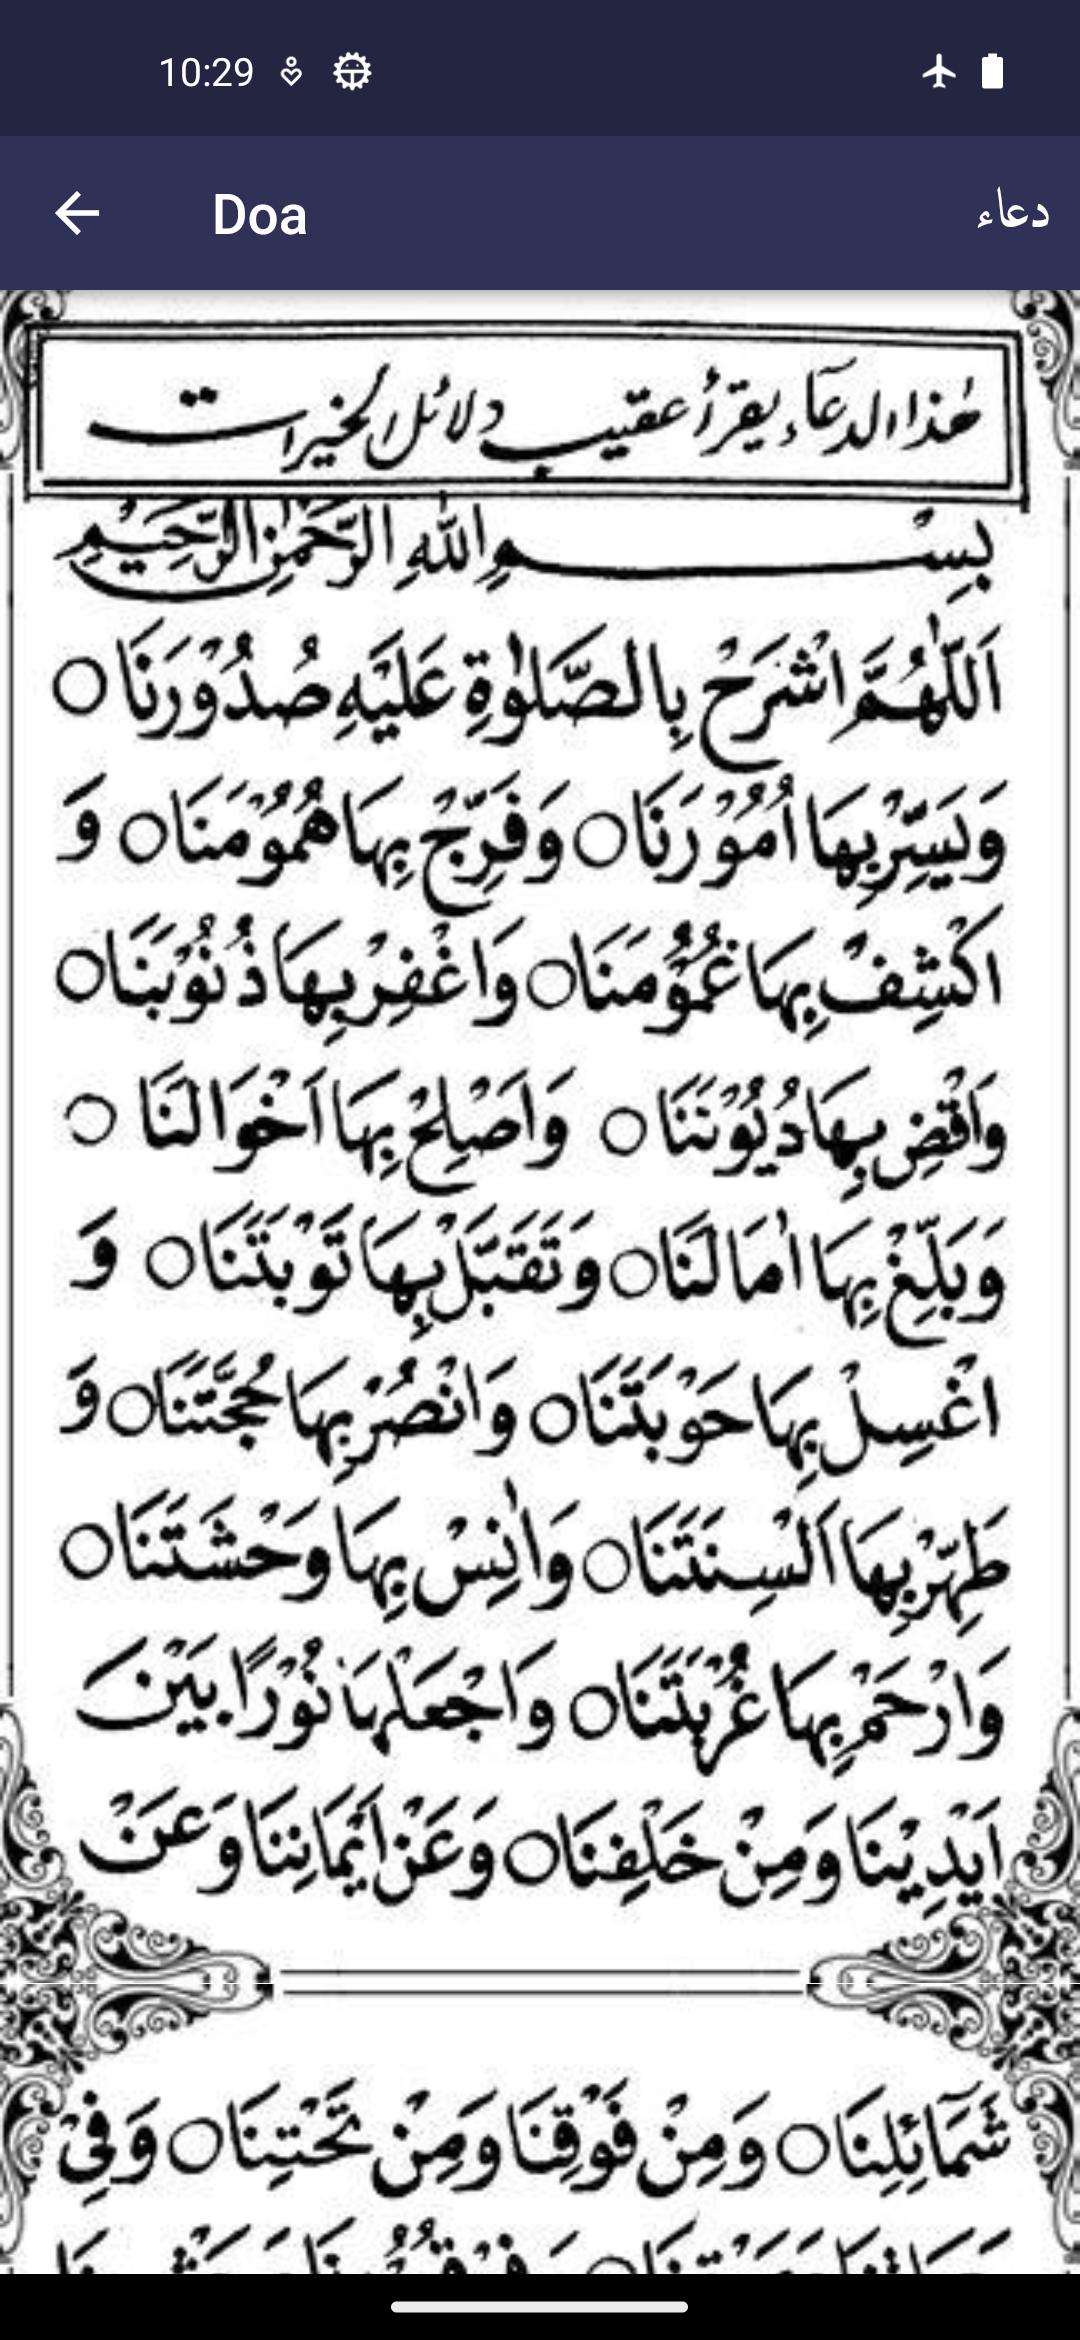 10:29
Doa
دعاء
هٰذا الدعَآء يقرأ عقيب دلائل الخيرات
بِسْمِ اللهِ الرَّحْمٰنِ الرَّحِيْمِ
اَللّٰهُمَّ اشْرَحْ بِالصَّلٰوةِ عَلَيْهِ صُدُوْرَنَا ○
وَيَسِّرْ بِهَا اُمُوْرَنَا ○ وَفَرِّجْ بِهَا هُمُوْمَنَا ○ وَ
اكْشِفْ بِهَا غُمُوْمَنَا ○ وَاغْفِرْ بِهَا ذُنُوْبَنَا ○
وَاقْضِ بِهَا دُيُوْنَنَا ○ وَاَصْلِحْ بِهَا اَخْوَالَنَا ○
وَبَلِّغْ بِهَا اٰمَالَنَا ○ وَتَقَبَّلْ بِهَا تَوْبَتَنَا ○ وَ
اغْسِلْ بِهَا حَوْبَتَنَا ○ وَانْصُرْ بِهَا حُجَّتَنَا ○ وَ
طَهِّرْ بِهَا اَلْسِنَتَنَا ○ وَاٰنِسْ بِهَا وَحْشَتَنَا ○
وَارْحَمْ بِهَا غُرْبَتَنَا ○ وَاجْعَلْهَا نُوْرًا بَيْنَ
اَيْدِيْنَا وَمِنْ خَلْفِنَا ○ وَعَنْ اَيْمَانِنَا وَعَنْ
شَمَآئِلِنَا ○ وَمِنْ فَوْقِنَا وَمِنْ تَحْتِنَا ○ وَفِىْ